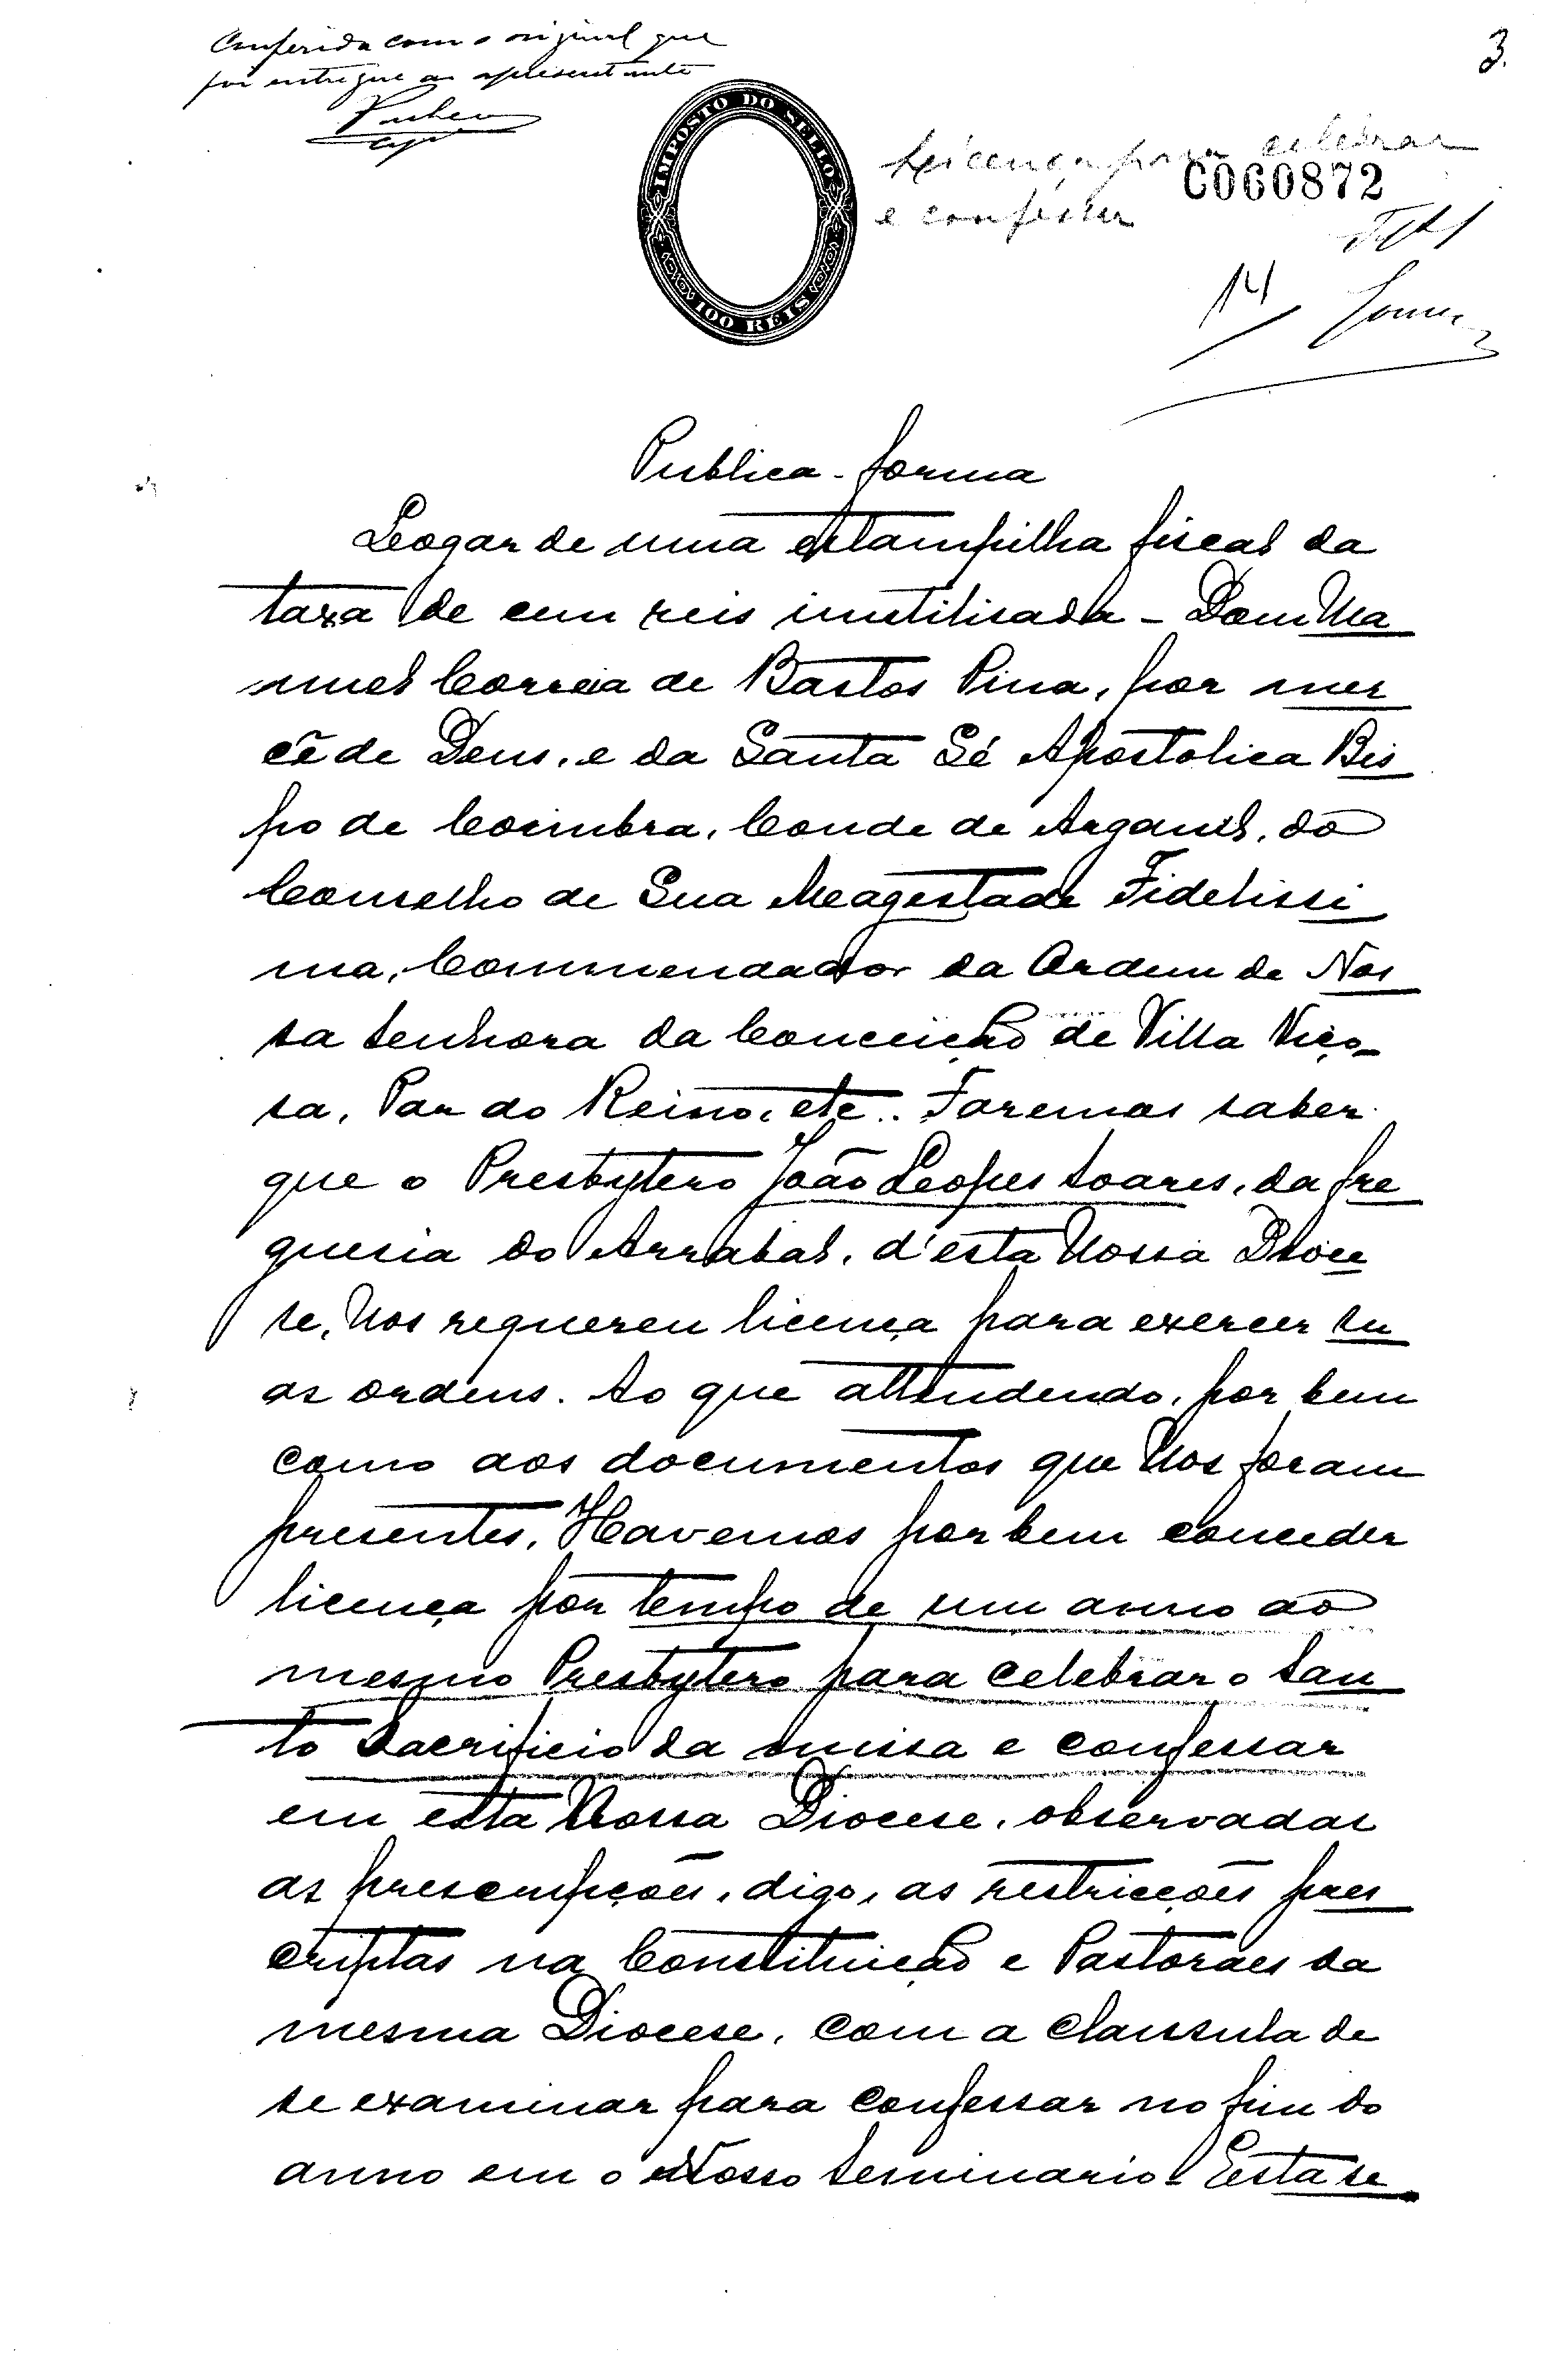 Conferida com o original que
foi entregue ao apresentante
3.
IMPOSTO DO SELLO
100 REIS
Licença para celebrar
e confessar
C060872
14
Publica-forma
Logar de uma estampilha fiscal da
taxa de cem reis inutilisada - Dom Ma
nuel Correia de Bastos Pina, por mer
cê de Deus, e da Santa Sé Apostolica Bis
po de Coimbra, Conde de Arganil, do
Conselho de Sua Magestade Fidelissi
ma, Commendador da Ordem de Nos
sa Senhora da Conceição de Villa Viço-
sa, Par do Reino, etc.. Faremos saber
que o Presbytero João Lopes Soares, da fre
guesia do Arrabal, d'esta Nossa Dioce
se, Nos requereu licença para exercer su
as ordens. Ao que attendendo, por bem
como aos documentos que Nos foram
presentes, Havemos por bem conceder
licença por tempo de um anno ao
mesmo Presbytero para celebrar o San
to Sacrificio da missa e confessar
em esta Nossa Diocese, observadas
as prescripções, digo, as restricções pres
criptas na Constituição e Pastoraes da
mesma Diocese, com a clausula de
se examinar para confessar no fim do
anno em o Nosso Seminario. Esta se